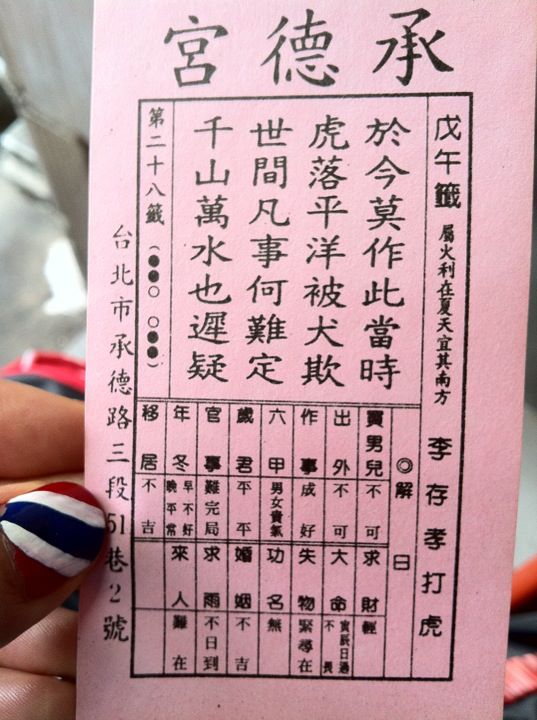 承德宮
戊午籤 屬火利在夏天宜其南方 李存孝打虎
於今莫作此當時
虎落平洋被犬欺
世間凡事何難定
千山萬水也遲疑
第二十八籤(●●○ ○●●)
◎解曰
買男兒 不可
出外 不可
作事 成好
六甲 男女貴氣
歲君 平平
官事 難完局
年冬 早不好 晚平常
移居 不吉
求財 輕
大命 寅辰日過不畏
失物 緊尋在
功名 無
婚姻 不吉
求雨 不日到
來人 難在
台北市承德路三段51巷2號